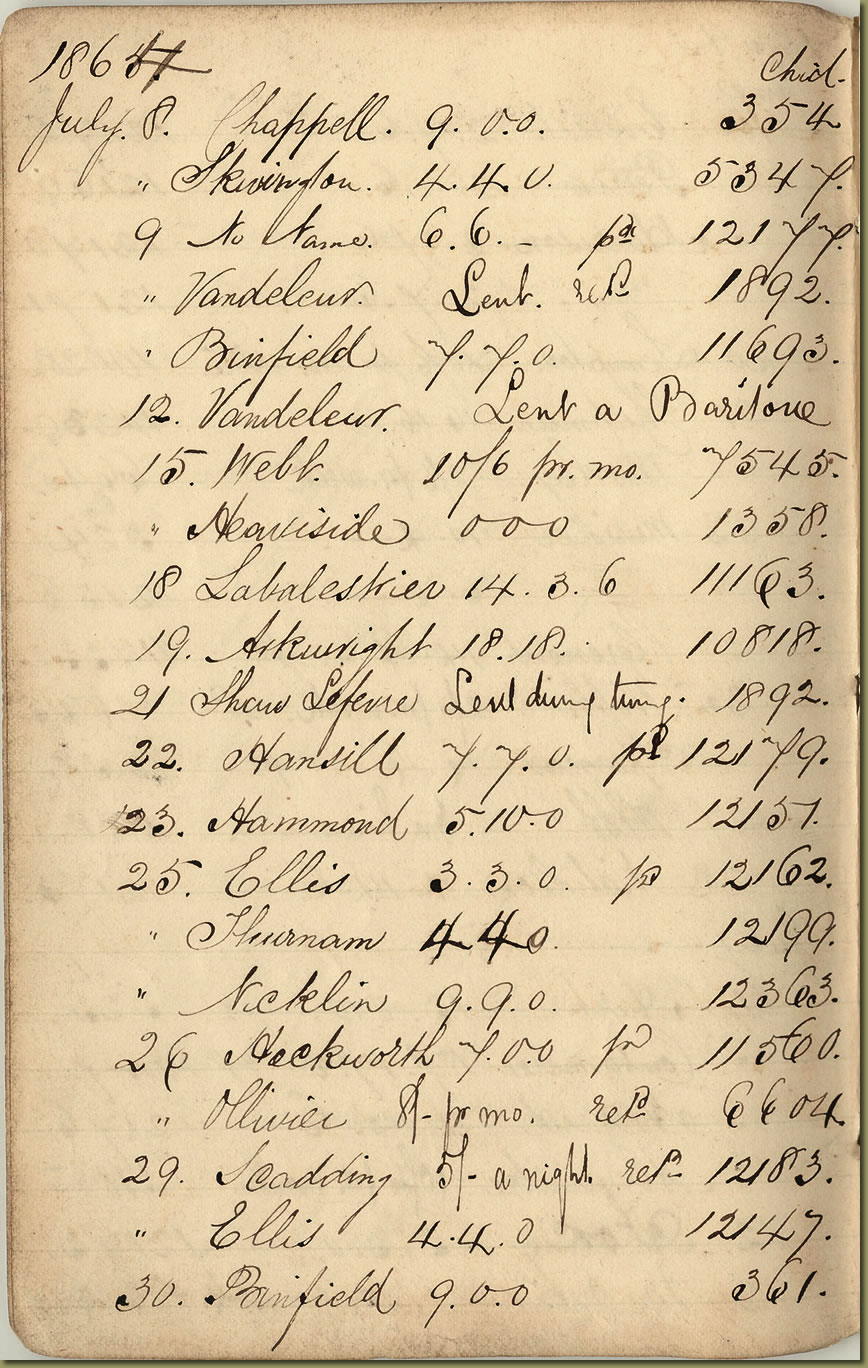 1864 Chid.
July. 8. Chappell. 9. 0.0. 354
" Skivington. 4. 4. 0. 5347.
9 No Name. 6. 6. - pd 12177.
" Vandeleur. Lent. retd 1892.
" Binfield 7. 7. 0. 11693.
12. Vandeleur. Lent a Baritone
15. Webb. 10/6 pr. mo. 7545.
" Heaviside 000 1358.
18 Labaleskier 14. 3. 6 11163.
19. Arkwright 18. 18. 10818.
21 Shaw Lefevre Lent during tuning. 1892.
22. Hansill 7. 7. 0. pd 12179.
23. Hammond 5. 10. 0 12157.
25. Ellis 3. 3. 0. pd 12162.
" Thurnam 4 4 0. 12199.
" Nicklin 9. 9. 0. 12363.
26 Heckworth 7. 0. 0 pd 11560.
" Ollivier 8/- pr mo. retd 6604.
29. Scadding 5/- a night. retd 12183.
" Ellis 4. 4. 0 12147.
30. Binfield 9. 0. 0 361.